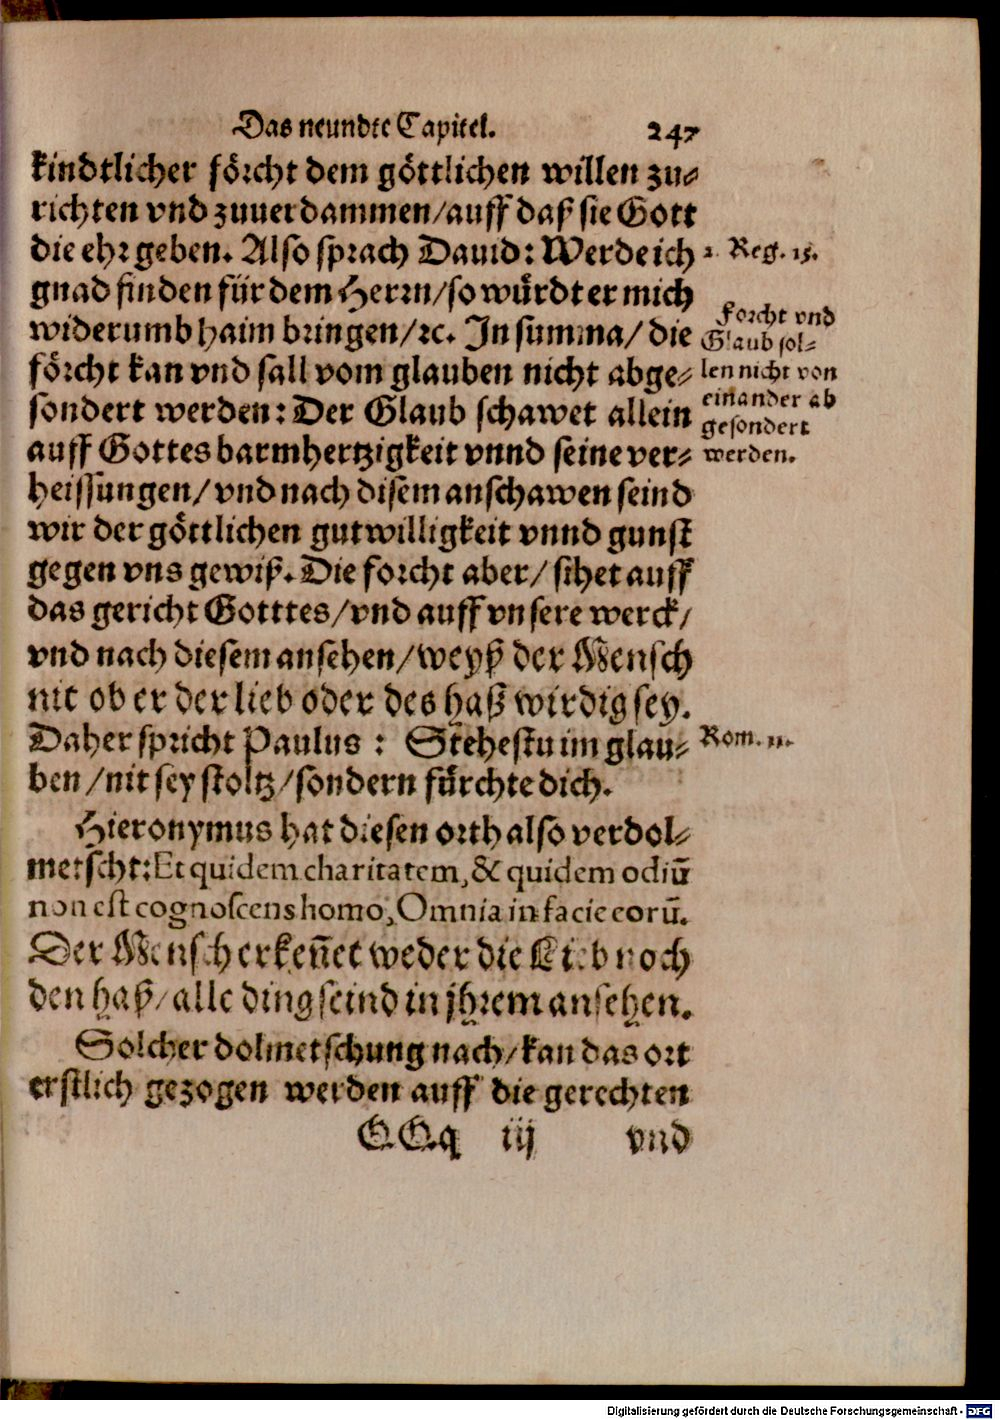 Das neundte Capitel. 247
kindtlicher förcht dem göttlichen willen zu⸗
richten vnd zuuerdammen/auff daß sie Gott
die ehr geben. Also sprach Dauid: Werde ich
2. Reg. 15.
gnad finden für dem Herrn/so würdt er mich
widerumb haim bringen/ꝛc. In summa/ die
förcht kan vnd sall vom glauben nicht abge⸗
sondert werden: Der Glaub schawet allein
Forcht vnd
Glaub sol⸗
len nicht von
einander ab
gesondert
werden.
auff Gottes barmhertzigkeit vnnd seine ver⸗
heissungen/vnd nach disem anschawen seind
wir der göttlichen gutwilligkeit vnnd gunst
gegen vns gewiß. Die forcht aber/ sihet auff
das gericht Gotttes/vnd auff vnsere werck/
vnd nach diesem ansehen/weyß der Mensch
nit ob er der lieb oder des haß wirdig sey.
Daher spricht Paulus : Stehestu im glau⸗
Rom. 11.
ben/nit sey stoltz/sondern fürchte dich.
Hieronymus hat diesen orth also verdol⸗
metscht: Et quidem charitatem, & quidem odiū
non est cognoscens homo, Omnia in facie eorū.
Der Mensch erkeñet weder die Lieb noch
den haß/alle ding seind in jhrem ansehen.
Solcher dolmetschung nach/kan das ort
erstlich gezogen werden auff die gerechten
QQq iij vnd
Digitalisierung gefördert durch die Deutsche Forschungsgemeinschaft - DFG